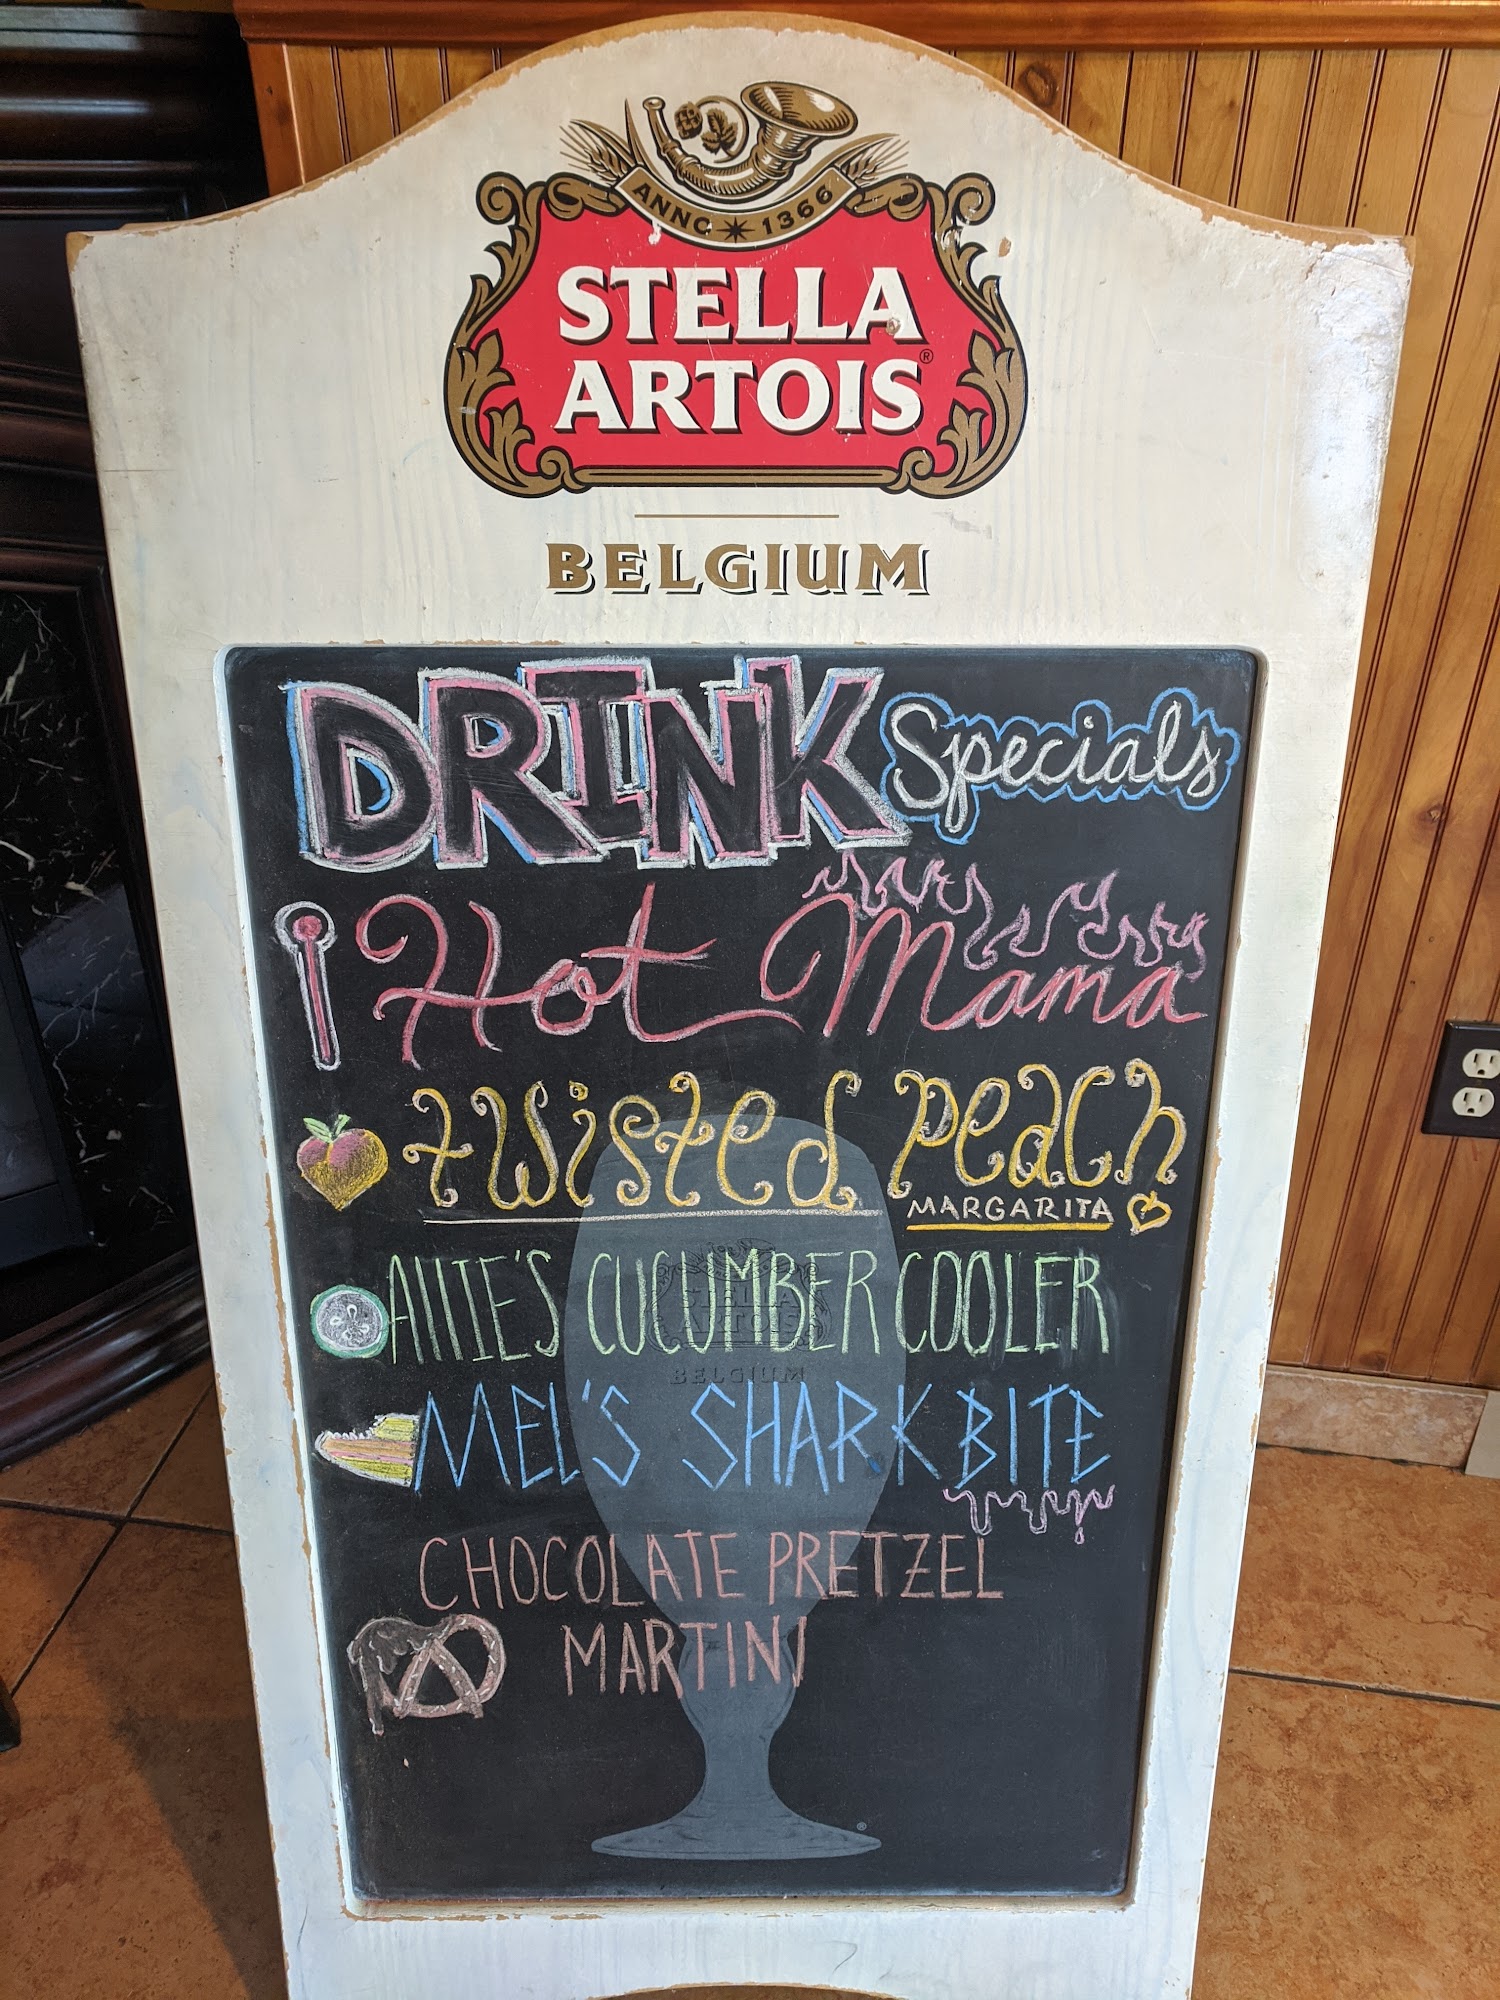 ANNO 1366
STELLA
ARTOIS®
BELGIUM
DRINK Specials
Hot Mama
twisted peach
MARGARITA
AllIE'S CUCUMBER COOLER
STELLA
ARTOIS
BELGIUM
MEL'S SHARK BITE
CHOCOLATE PRETZEL
MARTINI
®